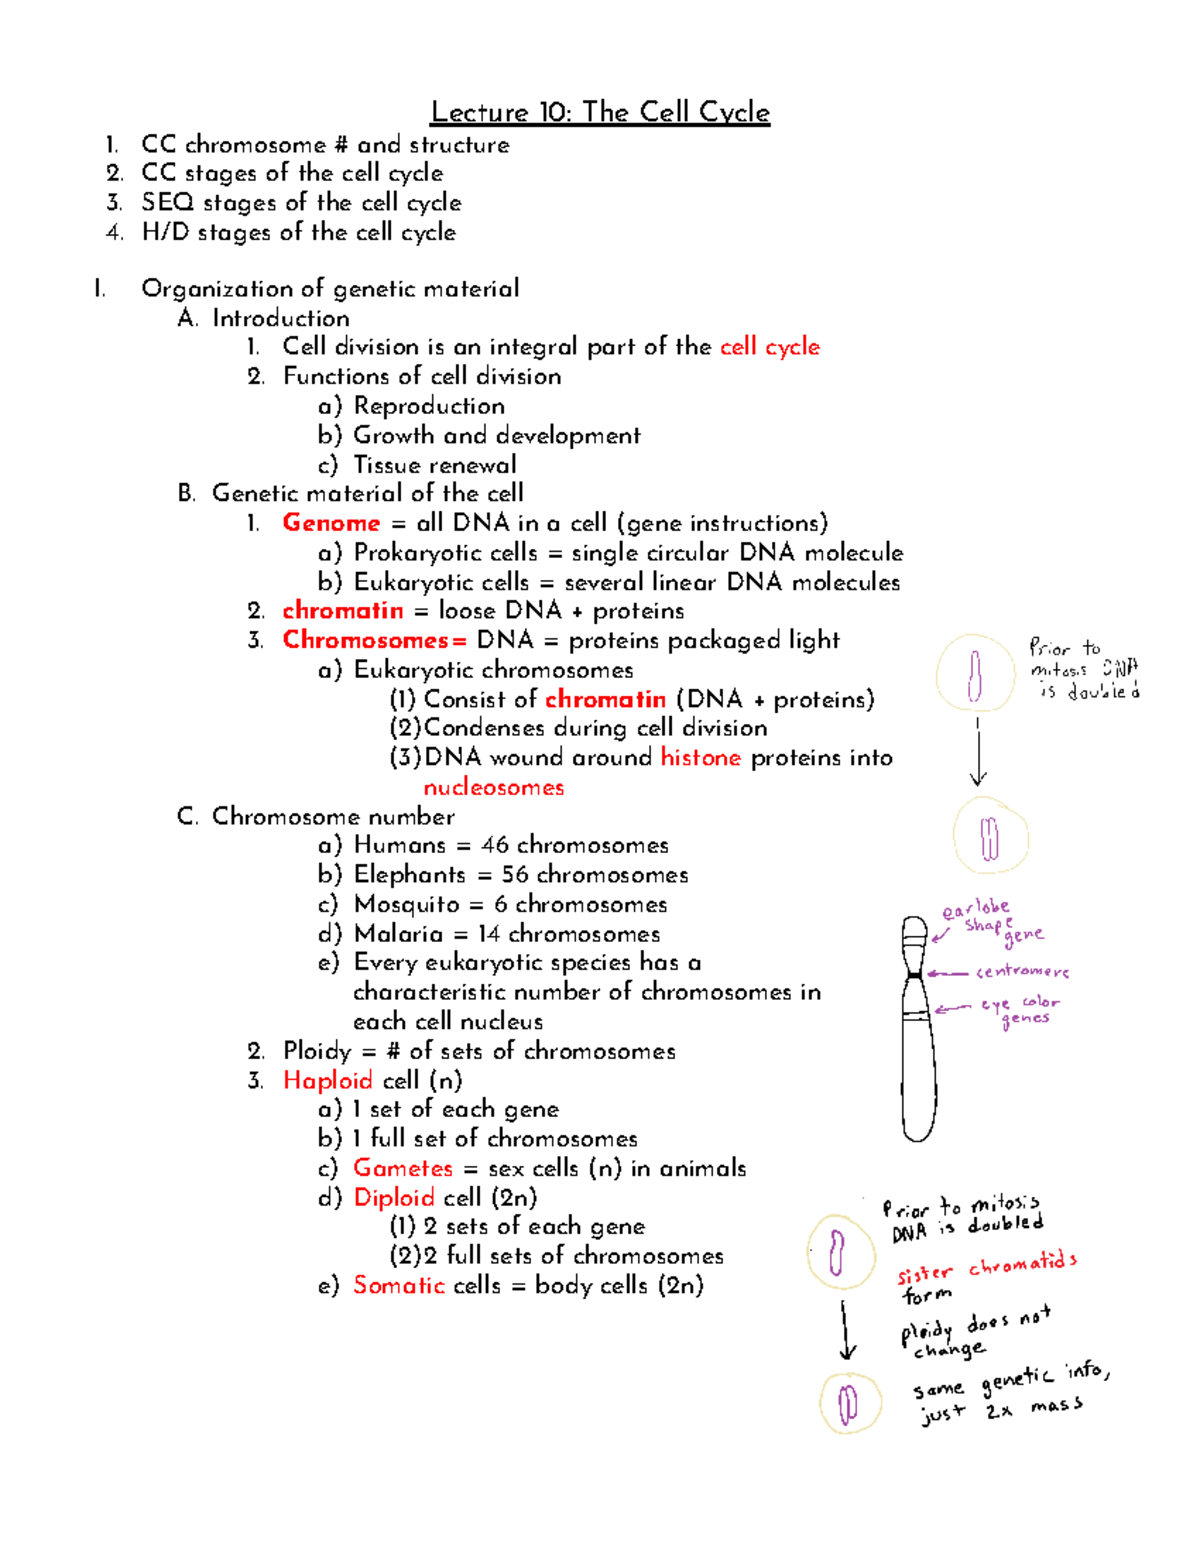 Lecture 10: The Cell Cycle
1. CC chromosome # and structure
2. CC stages of the cell cycle
3. SEQ stages of the cell cycle
4. H/D stages of the cell cycle
I. Organization of genetic material
A. Introduction
1. Cell division is an integral part of the cell cycle
2. Functions of cell division
a) Reproduction
b) Growth and development
c) Tissue renewal
B. Genetic material of the cell
1. Genome = all DNA in a cell (gene instructions)
a) Prokaryotic cells = single circular DNA molecule
b) Eukaryotic cells = several linear DNA molecules
2. chromatin = loose DNA + proteins
3. Chromosomes= DNA = proteins packaged light
a) Eukaryotic chromosomes
(1) Consist of chromatin (DNA + proteins)
(2)Condenses during cell division
(3)DNA wound around histone proteins into
nucleosomes
Prior to
mitosis DNA
is doubled
C. Chromosome number
a) Humans = 46 chromosomes
b) Elephants = 56 chromosomes
c) Mosquito = 6 chromosomes
d) Malaria = 14 chromosomes
e) Every eukaryotic species has a
characteristic number of chromosomes in
each cell nucleus
earlobe
shape
gene
centromere
eye color
genes
2. Ploidy = # of sets of chromosomes
3. Haploid cell (n)
a) 1 set of each gene
b) 1 full set of chromosomes
c) Gametes = sex cells (n) in animals
d) Diploid cell (2n)
(1) 2 sets of each gene
(2)2 full sets of chromosomes
e) Somatic cells = body cells (2n)
Prior to mitosis
DNA is doubled
sister chromatids
form
ploidy does not
change
same genetic info,
just 2x mass